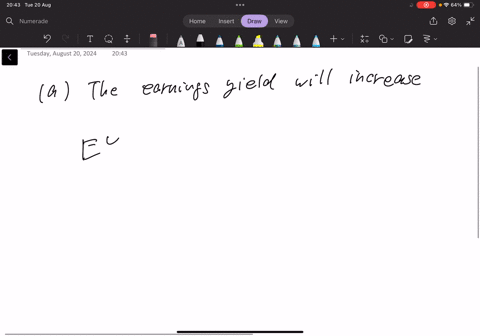 20:43 Tue 20 Aug
64%
Numerade
Home Insert Draw View
Tuesday, August 20, 2024 20:43
(a) The earnings yield will increase